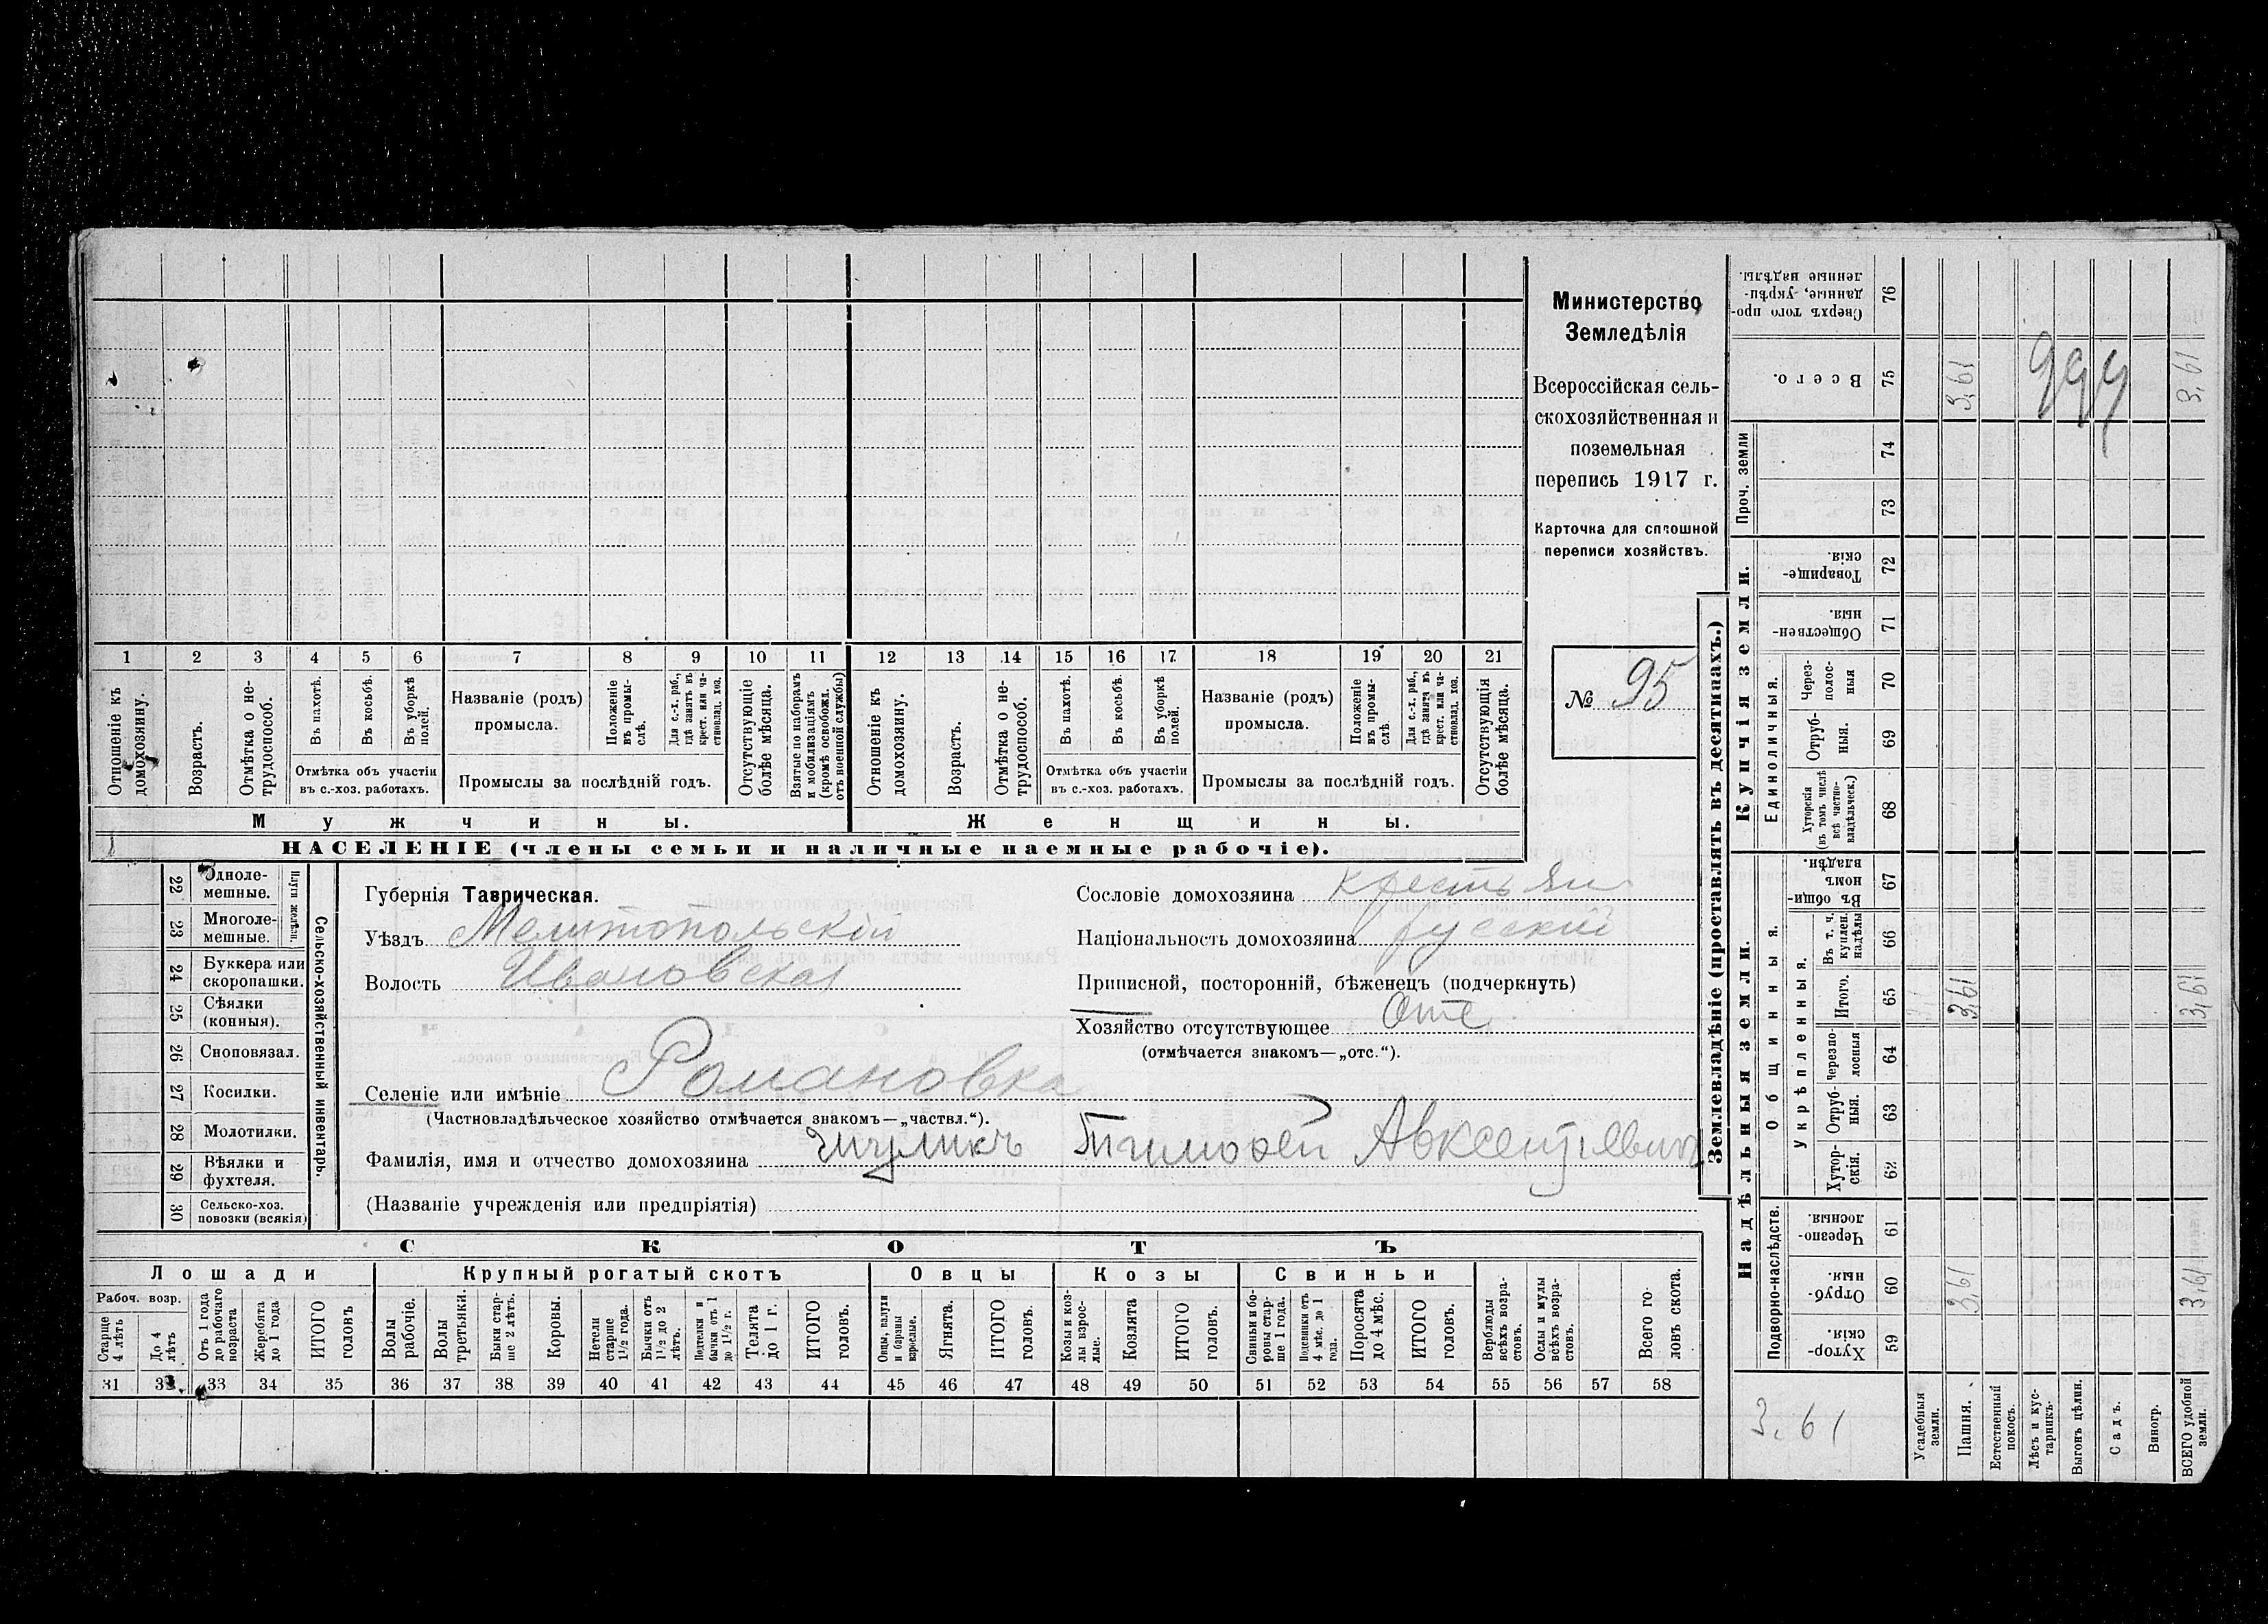 1 2 3 4 5 6 7 8 9 10 11 12 13 14 15 16 17 18 19 20 21
Отношеніе къ домохозяину.
Возрастъ.
Отмѣтка о нетрудоспособ.
Въ пахотѣ.
Въ косьбѣ.
Въ уборкѣ полей.
Отмѣтка объ участіи въ с.-хоз. работахъ.
Названіе (родъ) промысла.
Положеніе въ промыслѣ.
Для с.-х. раб., гдѣ занятъ въ крест. или частновлад. хоз.
Промыслы за послѣдній годъ.
Отсутствующіе болѣе мѣсяца.
Взятые по наборамъ и мобилизаціямъ (кромѣ освобожд. отъ военной службы)
Отношеніе къ домохозяину.
Возрастъ.
Отмѣтка о нетрудоспособ.
Въ пахотѣ.
Въ косьбѣ.
Въ уборкѣ полей.
Отмѣтка объ участіи въ с.-хоз. работахъ.
Названіе (родъ) промысла.
Положеніе въ промыслѣ.
Для с.-х. раб., гдѣ занятъ въ крест. или частновлад. хоз.
Промыслы за послѣдній годъ.
Отсутствующія болѣе мѣсяца.
Мужчины.
Женщины.
НАСЕЛЕНІЕ (члены семьи и наличные наемные рабочіе).
Министерство
Земледѣлія
Всероссійская сель-
скохозяйственная и
поземельная
перепись 1917 г.
Карточка для сплошной
переписи хозяйствъ.
№ 95
22 Одноле-мешные.
23 Многоле-мешные.
Плуги желѣзн.
24 Буккера или скоропашки.
25 Сѣялки (конныя).
26 Сноповязал.
27 Косилки.
28 Молотилки.
29 Вѣялки и фухтеля.
30 Сельско-хоз. повозки (всякія)
Сельско-хозяйственный инвентарь.
Губернія Таврическая.
Уѣздъ Мелитопольскій
Волость Ивановская
Селеніе или имѣніе Романовка
(Частновладѣльческое хозяйство отмѣчается знакомъ—„частвл.“).
Фамилія, имя и отчество домохозяина Тимофей Авксентіевичъ
(Названіе учрежденія или предпріятія)
Сословіе домохозяина крестьян
Національность домохозяина русскій
Приписной, посторонній, бѣженецъ (подчеркнуть)
Хозяйство отсутствующее Отс
(отмѣчается знакомъ—„отс.“).
СКОТЪ
Лошади
Рабоч. возр.
Старше 4 лѣтъ
До 4 лѣтъ
Отъ 1 года до рабочаго возраста
Жеребята до 1 года
ИТОГО головъ
Крупный рогатый скотъ
Волы рабочіе.
Волы третьяки.
Быки старше 2 лѣтъ.
Коровы.
Нетели старше 1½ года.
Бычки отъ 1½ до 2 лѣтъ.
Подтелки и бычки отъ 1 до 1½ г.
Телята до 1 г.
ИТОГО головъ.
Овцы
Овцы, валухи и бараны взрослые.
Ягнята.
ИТОГО головъ.
Козы
Козы и козлы взрослые.
Козлята
ИТОГО головъ.
Свиньи
Свиньи и боровы старше 1 года.
Подсвинки отъ 4 мѣс. до 1 года.
Поросята до 4 мѣс.
ИТОГО головъ.
Верблюды всѣхъ возрастовъ.
Ослы и мулы всѣхъ возрастовъ.
Всего головъ скота.
31 32 33 34 35 36 37 38 39 40 41 42 43 44 45 46 47 48 49 50 51 52 53 54 55 56 57 58
Землевладѣніе (проставлять въ десятинахъ.)
Купчія земли.
Надѣльныя земли.
Сверхъ того проданные, укрѣпленные надѣлы. 76
Всего. 75 3,61 999 3,61
Проч. земли 74 73
Товарищескія. 72
Общественныя. 71
Единоличныя.
Черезполосныя 70
Отрубныя. 69
Хуторскія (въ томъ числѣ всѣ частновладѣльческ.) 68
Общинныя.
Въ общинномъ владѣн. 67
Укрѣпленныя.
Въ т. ч. куплен. надѣлы 66
Итого. 65 3,61 3,61
Черезполосныя 64
Отрубныя. 63
Хуторскія. 62
Подворно-наслѣдств.
Черезполосныя. 61
Отрубныя. 60 3,61 3,61
Хуторскія. 59
3.61
Усадебныя земли.
Пашня.
Естественный покосъ.
Лѣсъ и кустарникъ.
Выгонъ цѣлин.
Садъ.
Виногр.
ВСЕГО удобной земли.